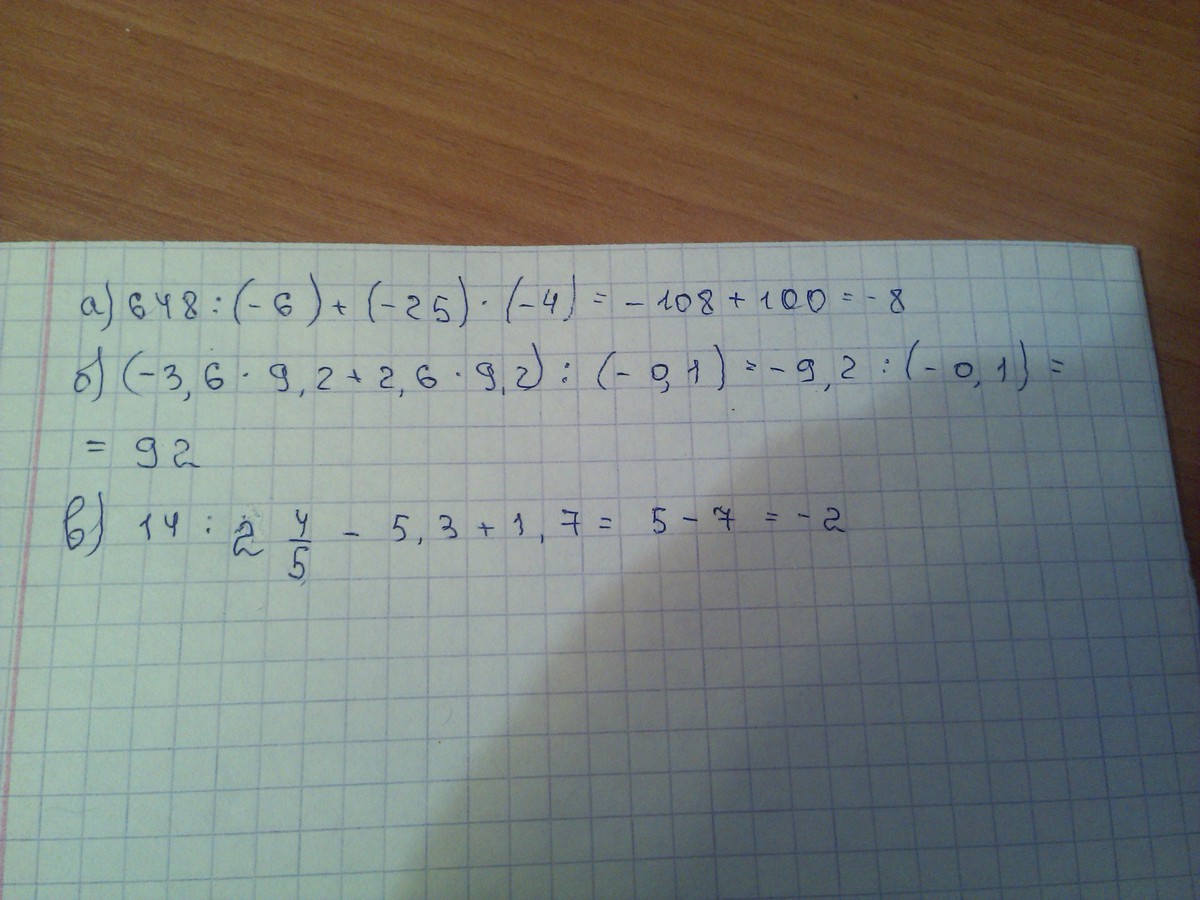 а) 648 : (-6) + (-25) · (-4) = -108 + 100 = -8
б) (-3,6 · 9,2 + 2,6 · 9,2) : (-0,1) = -9,2 : (-0,1) =
= 92
в) 14 : 2 4/5 - 5,3 + 1,7 = 5 - 7 = -2